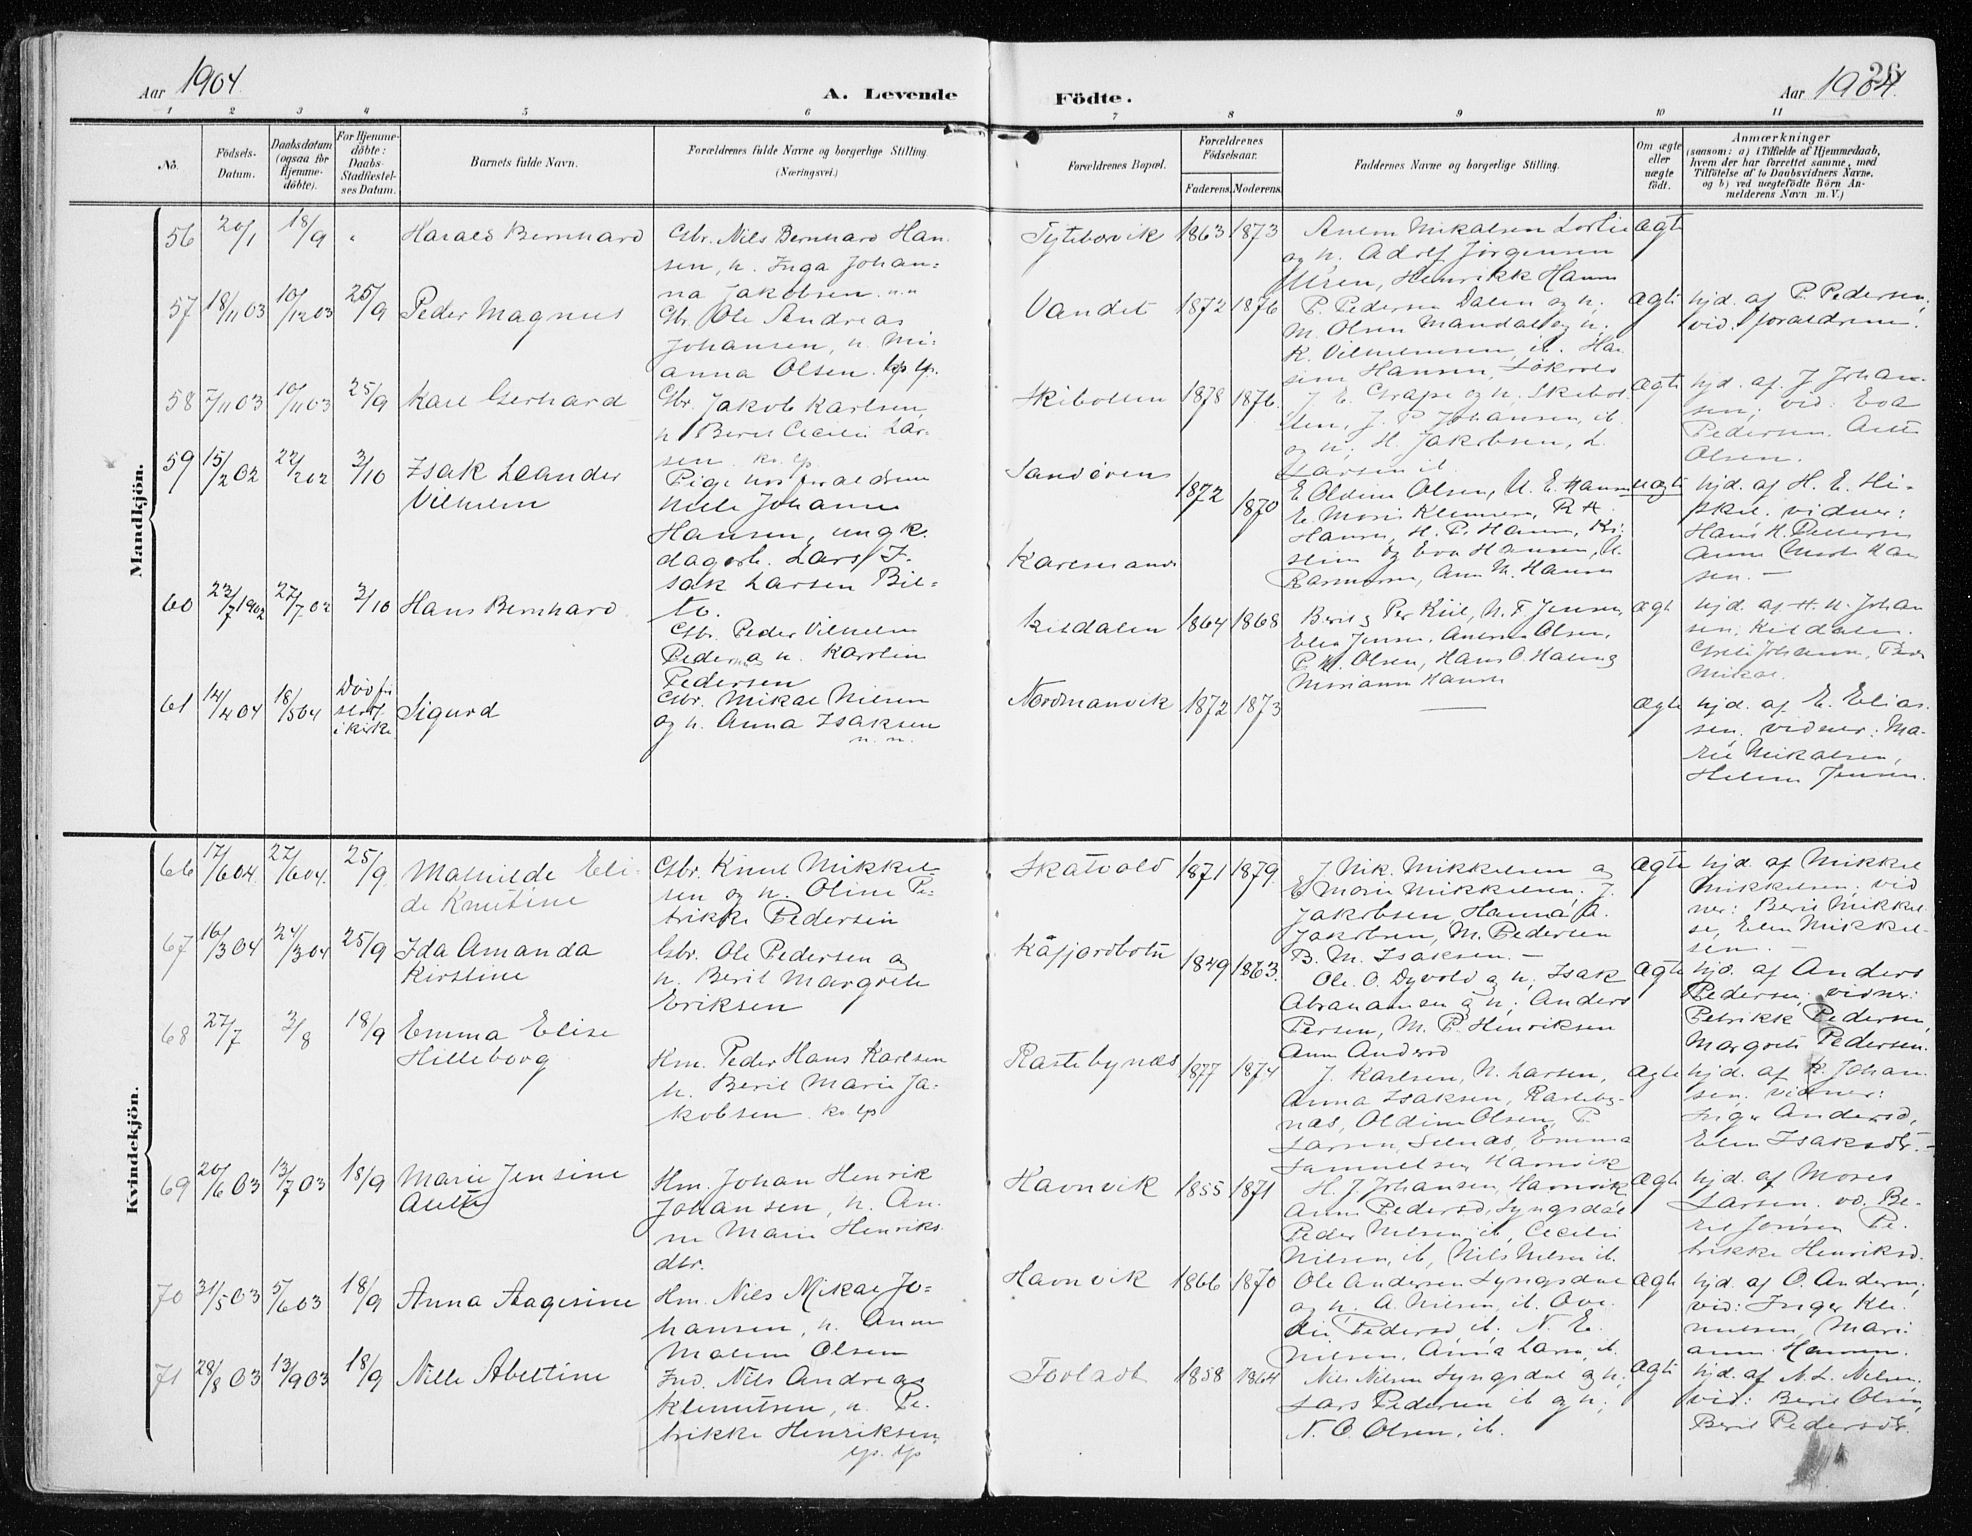 Aar 1904. A. Levende Födte. Aar 1904. 26
1 2 3 4 5 6 7 8 9 10 11
No. Födsels-Datum. Daabsdatum (ogsaa for Hjemmedöbte). For Hjemmedöbte: Daabs-Stadfæstelses Datum. Barnets fulde Navn. Forældrenes fulde Navne og borgerlige Stilling. (Næringsvei.) Forældrenes Bopæl. Forældrenes Födselsaar. Faderens. Moderens. Faddernes Navne og borgerlige Stilling. Om ægte eller uægte födt. Anmærkninger (saasom: a) i Tilfælde af Hjemmedaab, hvem der har forrettet samme, med Tilföielse af to Daabsvidners Navne, og b) ved uægtefödte Börn Anmelderens Navn m. V.)
Mandkjön.
56 20/1 18/9 " Harald Bernhard Gbr. Nils Bernhard Han-
sen, h. Inga Johan-
na Jakobsen. n.n
Tyttebærvik 1863 1873
og h. Adolf Jørgensen
Uren, Henrikk Hansen
ægte
57 18/11 03 10/12 03 25/9 Peder Magnus Gbr. Ole Andreas
Johansen, h. Mi-
anna Olsen. lp lp.
Vandet 1872 1876 P. Pedersen Dalen og h.
M. Olsen Mandal og h.
K. Vilhelmsen, ib. Han
Hansen,
ægte hjd. af P. Pedersen,
vid. forældrene.
58 7/11 03 10/11 03 25/9 Karl Gerhard Gbr. Jakob Karlsen,
h. Berit Cecilie Lar-
sen. kv. lp
Skibotten 1878 1876. J. E. Grape og h. Skibot
ten, J. P. Johansen, ib
og h; H. Jakobsen, L.
Larsen ib.
ægte hjd. af. J. Johan-
sen; vid: Eva
Pedersen. Ane
Olsen.
59 15/2 02 22/2 02 3/10 Isak Leander
Vilhelm
Pige hos forældrene
Nille Johanne
Hansen, ungk.
dagarb. Lars I-
sak Larsen Bil-
to.
Sandøren
1872 1870 E Oldine Olsen, N. E. Hansen
Hansen, H. P. Hansen,
og Eva Hansen,
Ane M. Hansen
uægte hjd. af H. E. Hi-
skil. vidner:
Hans H. Pedersen
Anne Marit Han
sen. —
60 23/7 1902 27/7 02 3/10 Hans Bernhard
Gbr. Peder Vilhelm
Pedersen og h. Karolin
Pedersen
Kildalen 1864 1868 Berit og Per Kiil, N. F. Jensen
Elen Jensen. Andreas Olsen,
P. M. Olsen, Hans O. Halsnæ
Marianne Hansen
ægt hjd. af H. N. Johan
sen, Kildalen.
Mikal.
61 14/4 04 18/5 04 Död før
i kirke
Sigurd Gbr. Mikal Nilsen
og h. Anna Isaksen
n. n.
Nordmanvik 1872 1873 —— ægte hjd. af E. Elias-
sen, vidner: Ma-
rie Mikalsen,
Helene Jensen.
Kvindekjön.
66 17/6 04. 27/6 04. 25/9 Mathilde Eli-
de Knutine
Gbr. Knut Mikkel-
sen og h. Oline Pe-
trikke Pedersen
Skatvold 1871 1879. J. Nik. Mikkelsen og
E Marie Mikkelsen, J.
Jakobsen, Hanna A.
Jakobsen, M. Pedersen
B. M. Isaksen. —
ægte hjd. af Mikkel
Mikkelsen; vid
ner: Berit Mikkel-
se, Elen Mikkel-
sen. —
67 16/3 04 24/3 04 25/9 Ida Amanda
Kirstine
Gbr. Ole Pedersen og
h. Berit Margrete
Eriksen
Kåfjordbotn 1849 1863. Ole O. Dyvold og h, Isak
Abrahamsen og h; Anders
Persen, M. P. Henriksen
Ane Andersd
ægte hjd. af Anders
Pedersen; vidner:
Petrikk Pedersen,
Margret Pedersen.
68 27/7 3/8 18/9 Emma Elise
Hilleborg
Hm. Peder Hans Karlsen
h. Berit Marie Ja-
kobsen kv lp
Rastebynæs 1877 1874 J. Karlsen, N. Larsen,
Anna Isaksen, Rasteby-
næs, Oldine Olsen, P.
Larsen, Selnæs, Emma
Samuelsen Havnvik
ægte hjd. af K. Johan-
sen, vidner:
Inger Andersd,
Elen Isaksdtr. —
69 20/6 03 13/7 03 18/9 Marie Jensine
Alette
Hm. Johan Henrik
Johansen, h. An-
ne Marie Henriks
dtr.
Havnvik 1855 1871 H. J. Johansen, Havnvik
Anne Pedersd, Lyngsdal
Peder Nilsen ib, Cecilie
Nilsen, ib, Nils Nilsen ib.
ægte hjd. af Moses
Larsen. vd. Be-
ret Jonsen Pe-
trikke Henriksd.
70 31/5 03 5/6 03 18/9 Anna Aagesine Hm. Nils Mikal Jo-
hansen, h. Anne
Malene Olsen
Havnvik 1866 1870 Ole Andersen Lyngsdal
og h. A. Nilsen, ib. Ove-
die Pedersd ib. N. E.
Nilsen, Anna Larsn, ib.
ægte hjd. af O. Andersn,
vid: Inger Kle-
metsen, Mari
anne Hansen.
71 28/8 03 13/9 03 18/9 Nille Abeltine Ind. Nils Andreas
Klemetsen, h. Pe-
trikke Henriksen,
lp. lp
Fovladt 1858 1864 Nils Nilsen Lyngsdal og h,
Lars Pedersen ib og h;
N. O. Olsen, ib.
ægte hjd. af N. L. Nilsen,
vid: Berit Olsen,
Berit Pedersdtr.